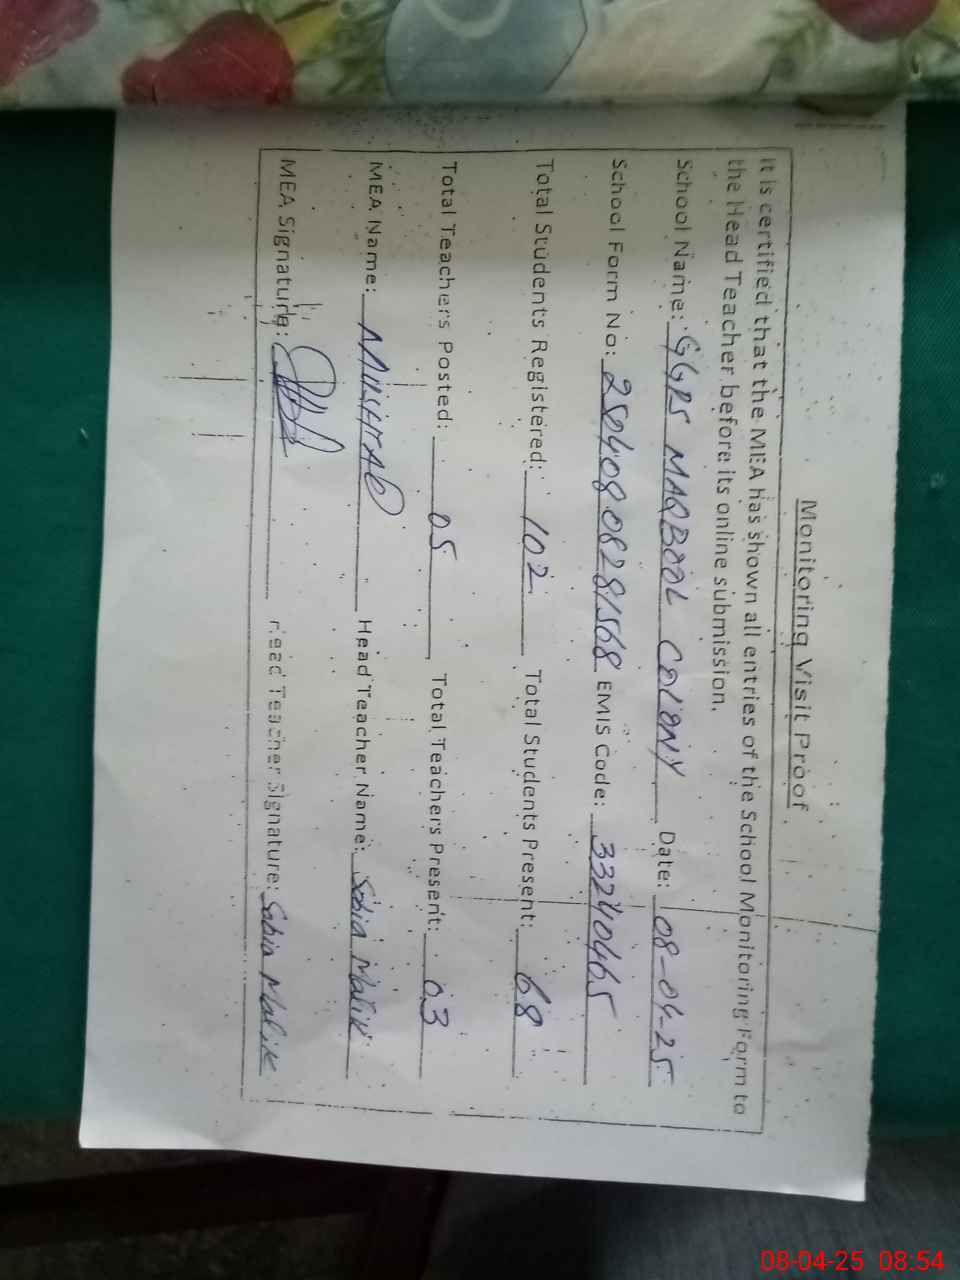 Monitoring Visit Proof
It is certified that the MEA has shown all entries of the School Monitoring Form to
the Head Teacher before its online submission.
School Name: GGPS MAQBOOL COLONY Date: 08-04-25
School Form No: 28040808281568 EMIS Code: 33240465
Total Students Registered: 102 Total Students Present: 68
Total Teachers Posted: 05 Total Teachers Present: 03
MEA Name: MUSHTAQ Head Teacher Name: Sobia Malik
MEA Signature: Head Teacher Signature: Sobia Malik
08-04-25 08:54